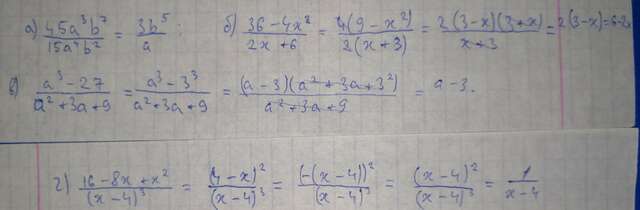 а) 45a³b⁷/15a⁴b² = 3b⁵/a ; б) 36-4x²/2x+6 = 4(9-x²)/2(x+3) = 2(3-x)(3+x)/x+3 = 2(3-x)=6-2x
в) a³-27/a²+3a+9 = a³-3³/a²+3a+9 = (a-3)(a²+3a+3²)/a²+3a+9 = a-3.
г) 16-8x+x²/(x-4)³ = (4-x)²/(x-4)³ = (-(x-4))²/(x-4)³ = (x-4)²/(x-4)³ = 1/x-4